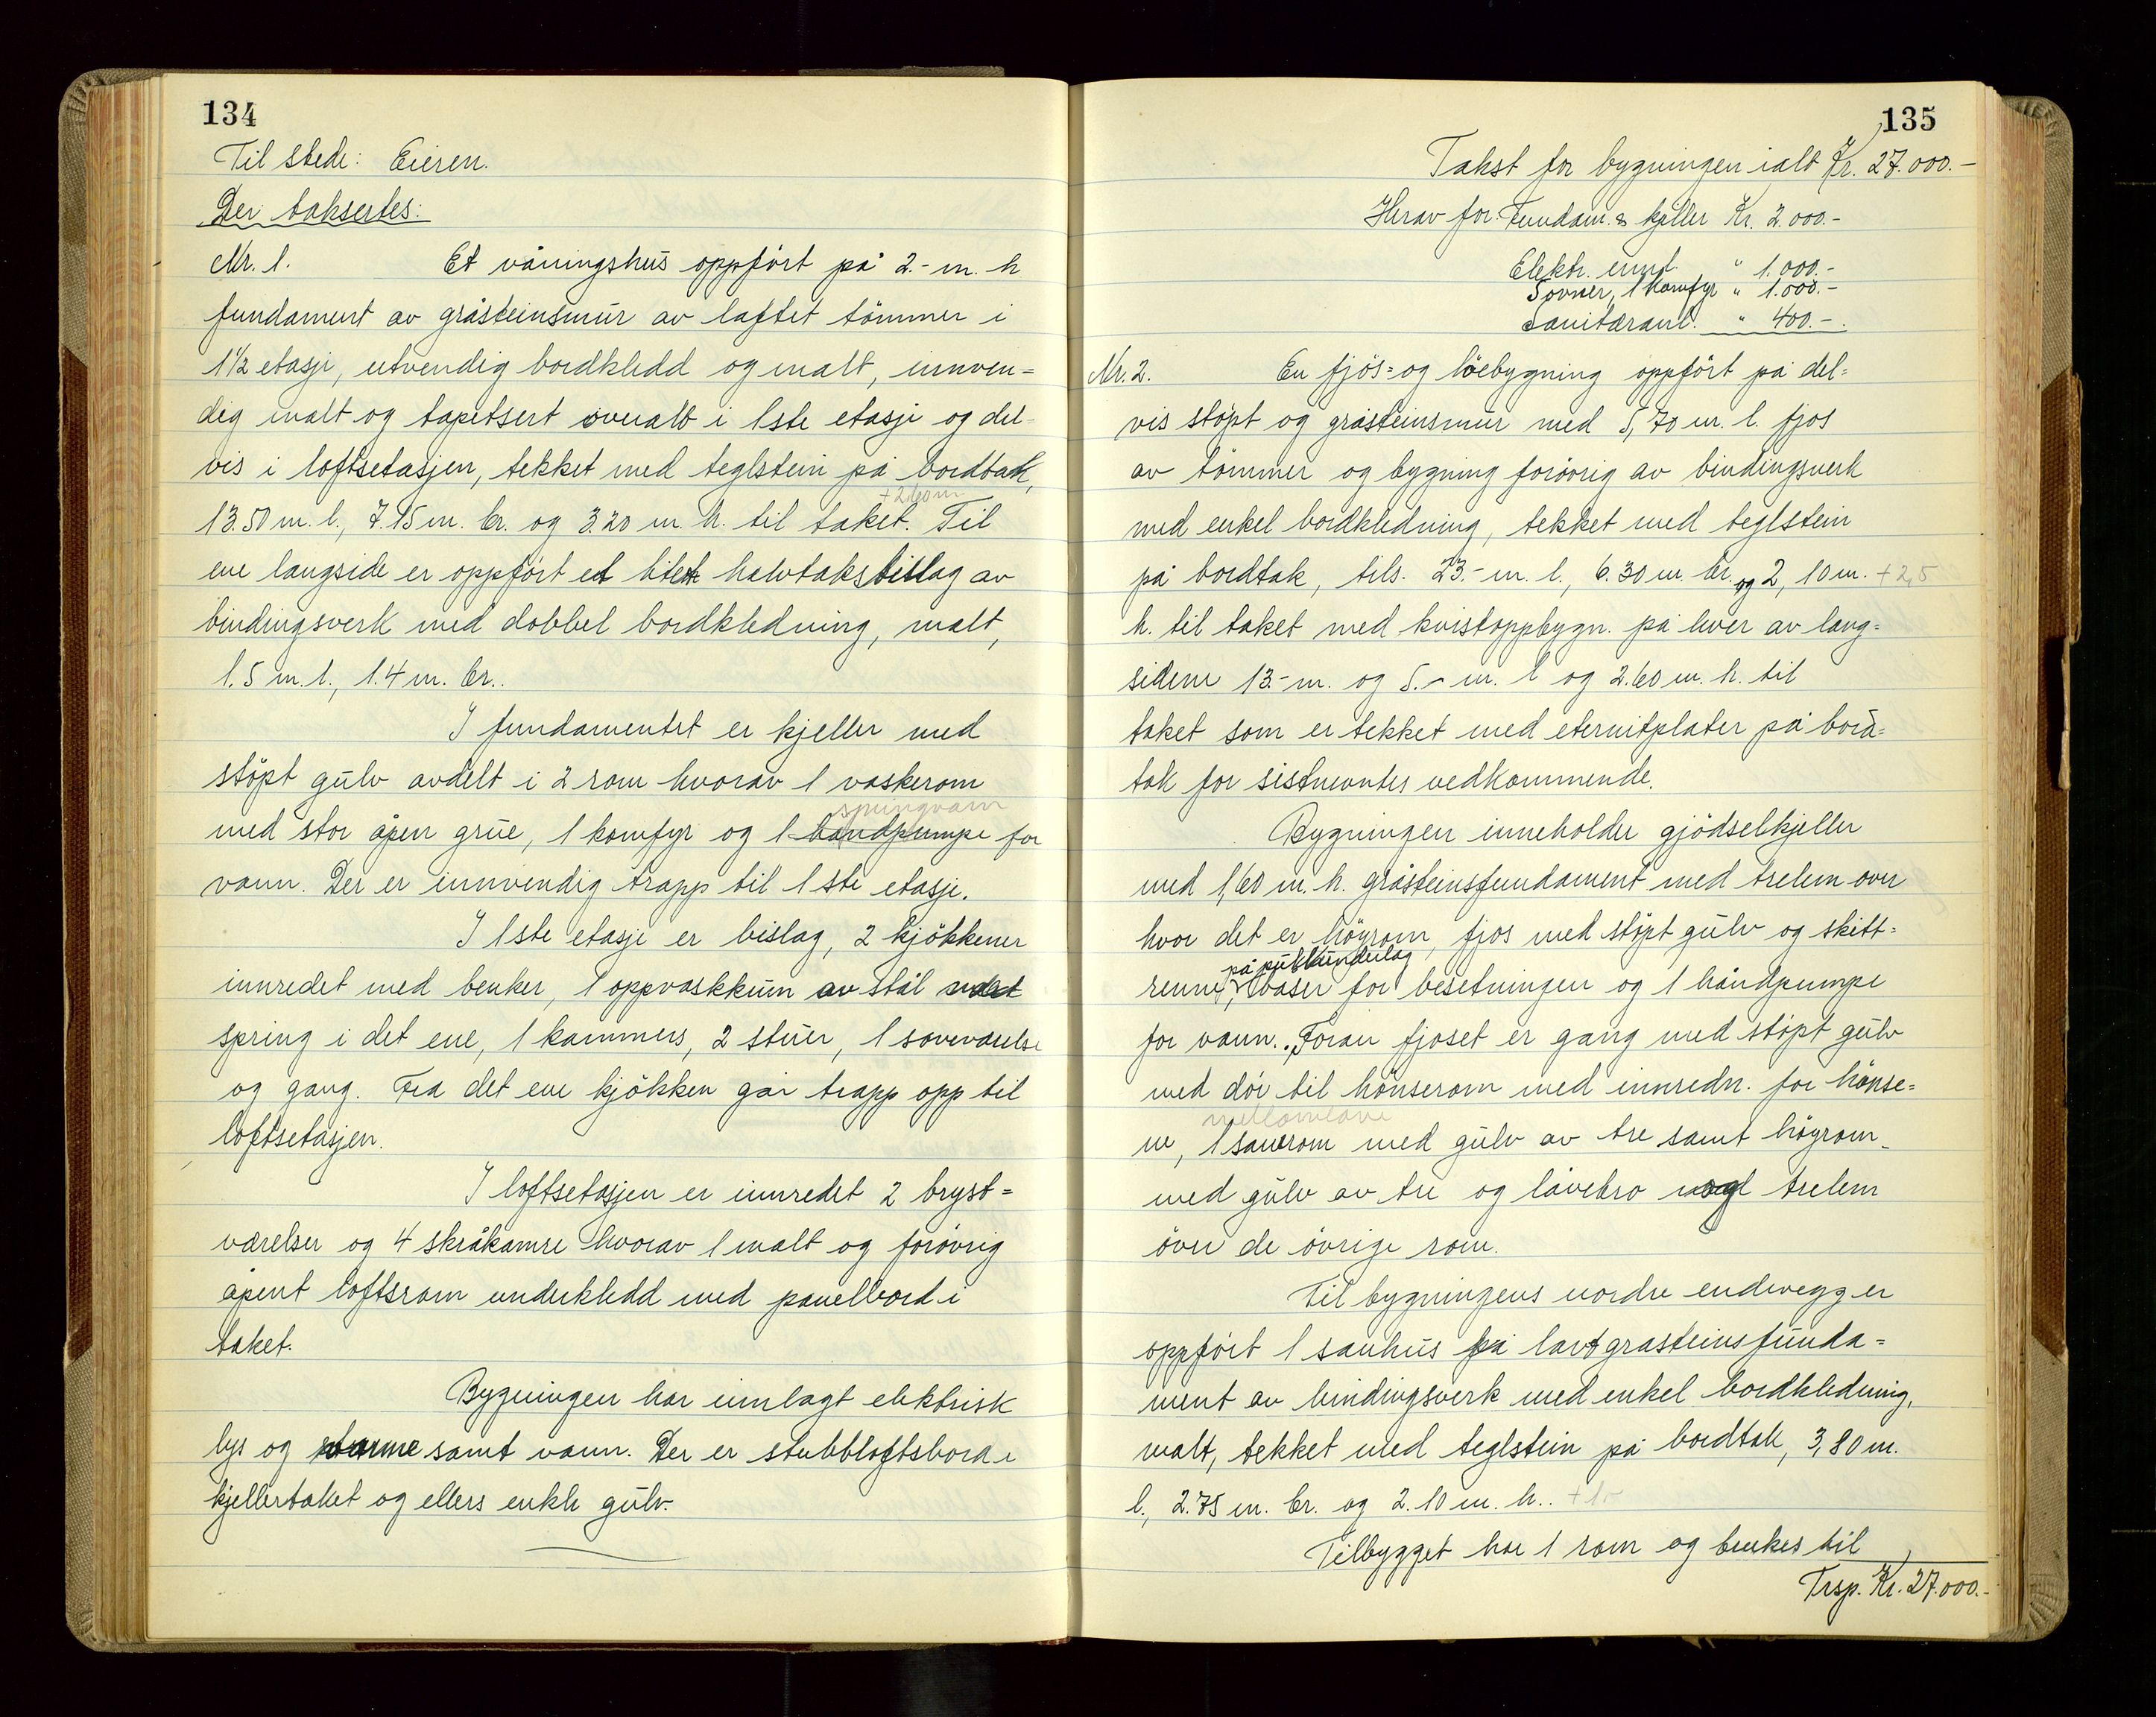 134
Til stede: Eieren.
Der taksertes:
Nr. 1. Et våningshus oppført på 2.- m. h
fundament av gråsteinsmur av laftet tømmer i
1 1/2 etasje, utvendig bordkledd og malt, innven=
dig malt og tapetsert overalt i 1ste etasje og del-
vis i loftsetasjen, tekket med teglstein på bordtak,
+2.60m
13.50 m. l., 7.15 m. br. og 3.20 m. h. til taket. Til
ene langside er oppført et litet halvtaksbislag av
bindingsverk med dobbel bordkledning, malt,
1.5 m. l., 1.4 m. br..
I fundamentet er kjeller med
støpt gulv avdelt i 2 rom hvorav 1 vaskerom
springvann
med stor åpen grue, 1 komfyr og 1 handpumpe for
vann. Der er innvendig trapp til 1ste etasje.
I 1ste etasje er bislag, 2 kjøkkener
innredet med benker, 1 oppvaskkum av stål med
spring i det ene, 1 kammers, 2 stuer, 1 soveværelse
og gang. Fra det ene kjøkken går trapp opp til
loftsetasjen.
I loftsetasjen er innredet 2 bryst=
værelser og 4 skråkamre hvorav 1 malt og forøvrig
åpent loftsrom underkledd med panelbord i
taket.
Bygningen har innlagt elektrisk
lys og varme samt vann. Der er stubbloftsbord i
kjellertaket og ellers enkle gulv.
135
Takst for bygningen ialt Kr. 27.000.-
Herav for: Fundam. & kjeller Kr. 2.000.-
Elektr. innt. " 1.000.-
5 ovner, 1 komfyr " 1.000.-
Sanitæranl. " 400.-.
Nr. 2. En fjøs= og løebygning oppført på del=
vis støpt og gråsteinsmur med 5,70 m. l. fjos
av tømmer og bygning forøvrig av bindingsverk
med enkel bordkledning, tekket med teglstein
på bordtak, tils. 23.- m. l., 6.30 m. br. og 2,10 m. +2,5
h. til taket med kvistoppbygn. på hver av lang=
sidene 13.- m. og 5.- m. l og 2.60 m. h. til
taket som er tekket med eternitplater på bord=
tak for sistnevntes vedkommende.
Bygningen inneholder gjødselkjeller
med 1,60 m. h. gråsteinsfundament med trelem over
hvor det er høyrom, fjos med støpt gulv og skitt=
på pukkunderlag
renne, båser for besetningen og 1 håndpumpe
for vann. Foran fjoset er gang med støpt gulv
med dør til hønserom med innredn. for hønse=
mellomlave
ne, 1 sauerom med gulv av tre samt høyrom
med gulv av tre og låvebro og trelem
over de øvrige rom.
Til bygningens nordre endevegg er
oppført 1 sauhus på lavt gråsteinsfunda=
ment av bindingsverk med enkel bordkledning,
malt, tekket med teglstein på bordtak, 3,80 m.
l., 2.75 m. br. og 2.10 m. h..
Tilbygget har 1 rom og brukes til
Trsp. Kr. 27.000.-